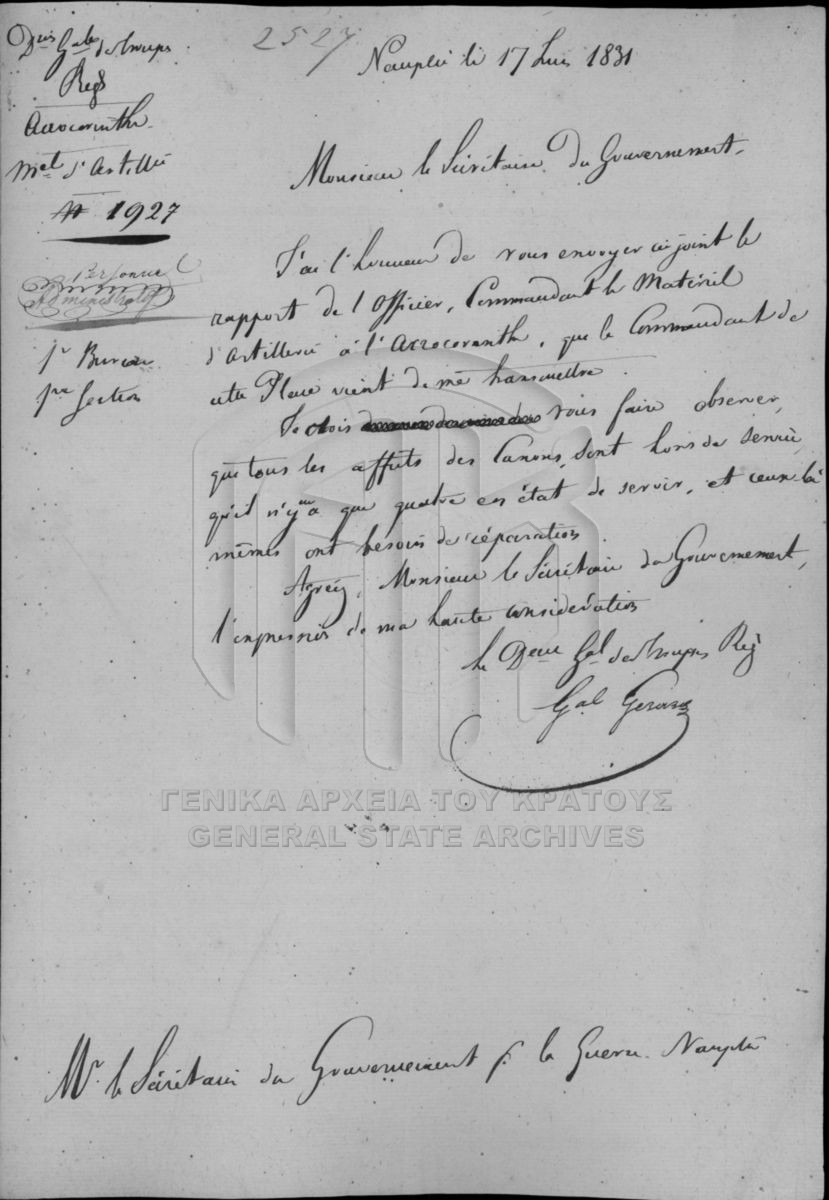 2527
Nauplie le 17 Juin 1831
Don Gale des troupes
Regs
Acrocorinthe
Mel d'Artillie
N 1927
Personnel
Administratif
1r Bureau
1re Section
Monsieur le Sécrétaire du Gouvernement,
J'ai l'honneur de vous envoyer ci joint le
rapport de l'Officier, Commandant le Matériel
d'Artillerie à l'Acrocorinthe, que le Commandant de
cette Place vient de me transmettre.
Je dois vous faire observer,
que tous les affuts des Canons, sont hors de service,
qu'il n'y en a que quatre en état de servir, et ceux là
mêmes ont besoin de réparation.
Agréez, Monsieur le Sécrétaire du Gouvernement,
l'expression de ma haute considération
Le Deur Gal des troupes Reg
Gal Gerard
ΓΕΝΙΚΑ ΑΡΧΕΙΑ ΤΟΥ ΚΡΑΤΟΥΣ
GENERAL STATE ARCHIVES
Mr le Sécrétaire du Gouvernement p. la Guerre Nauplie